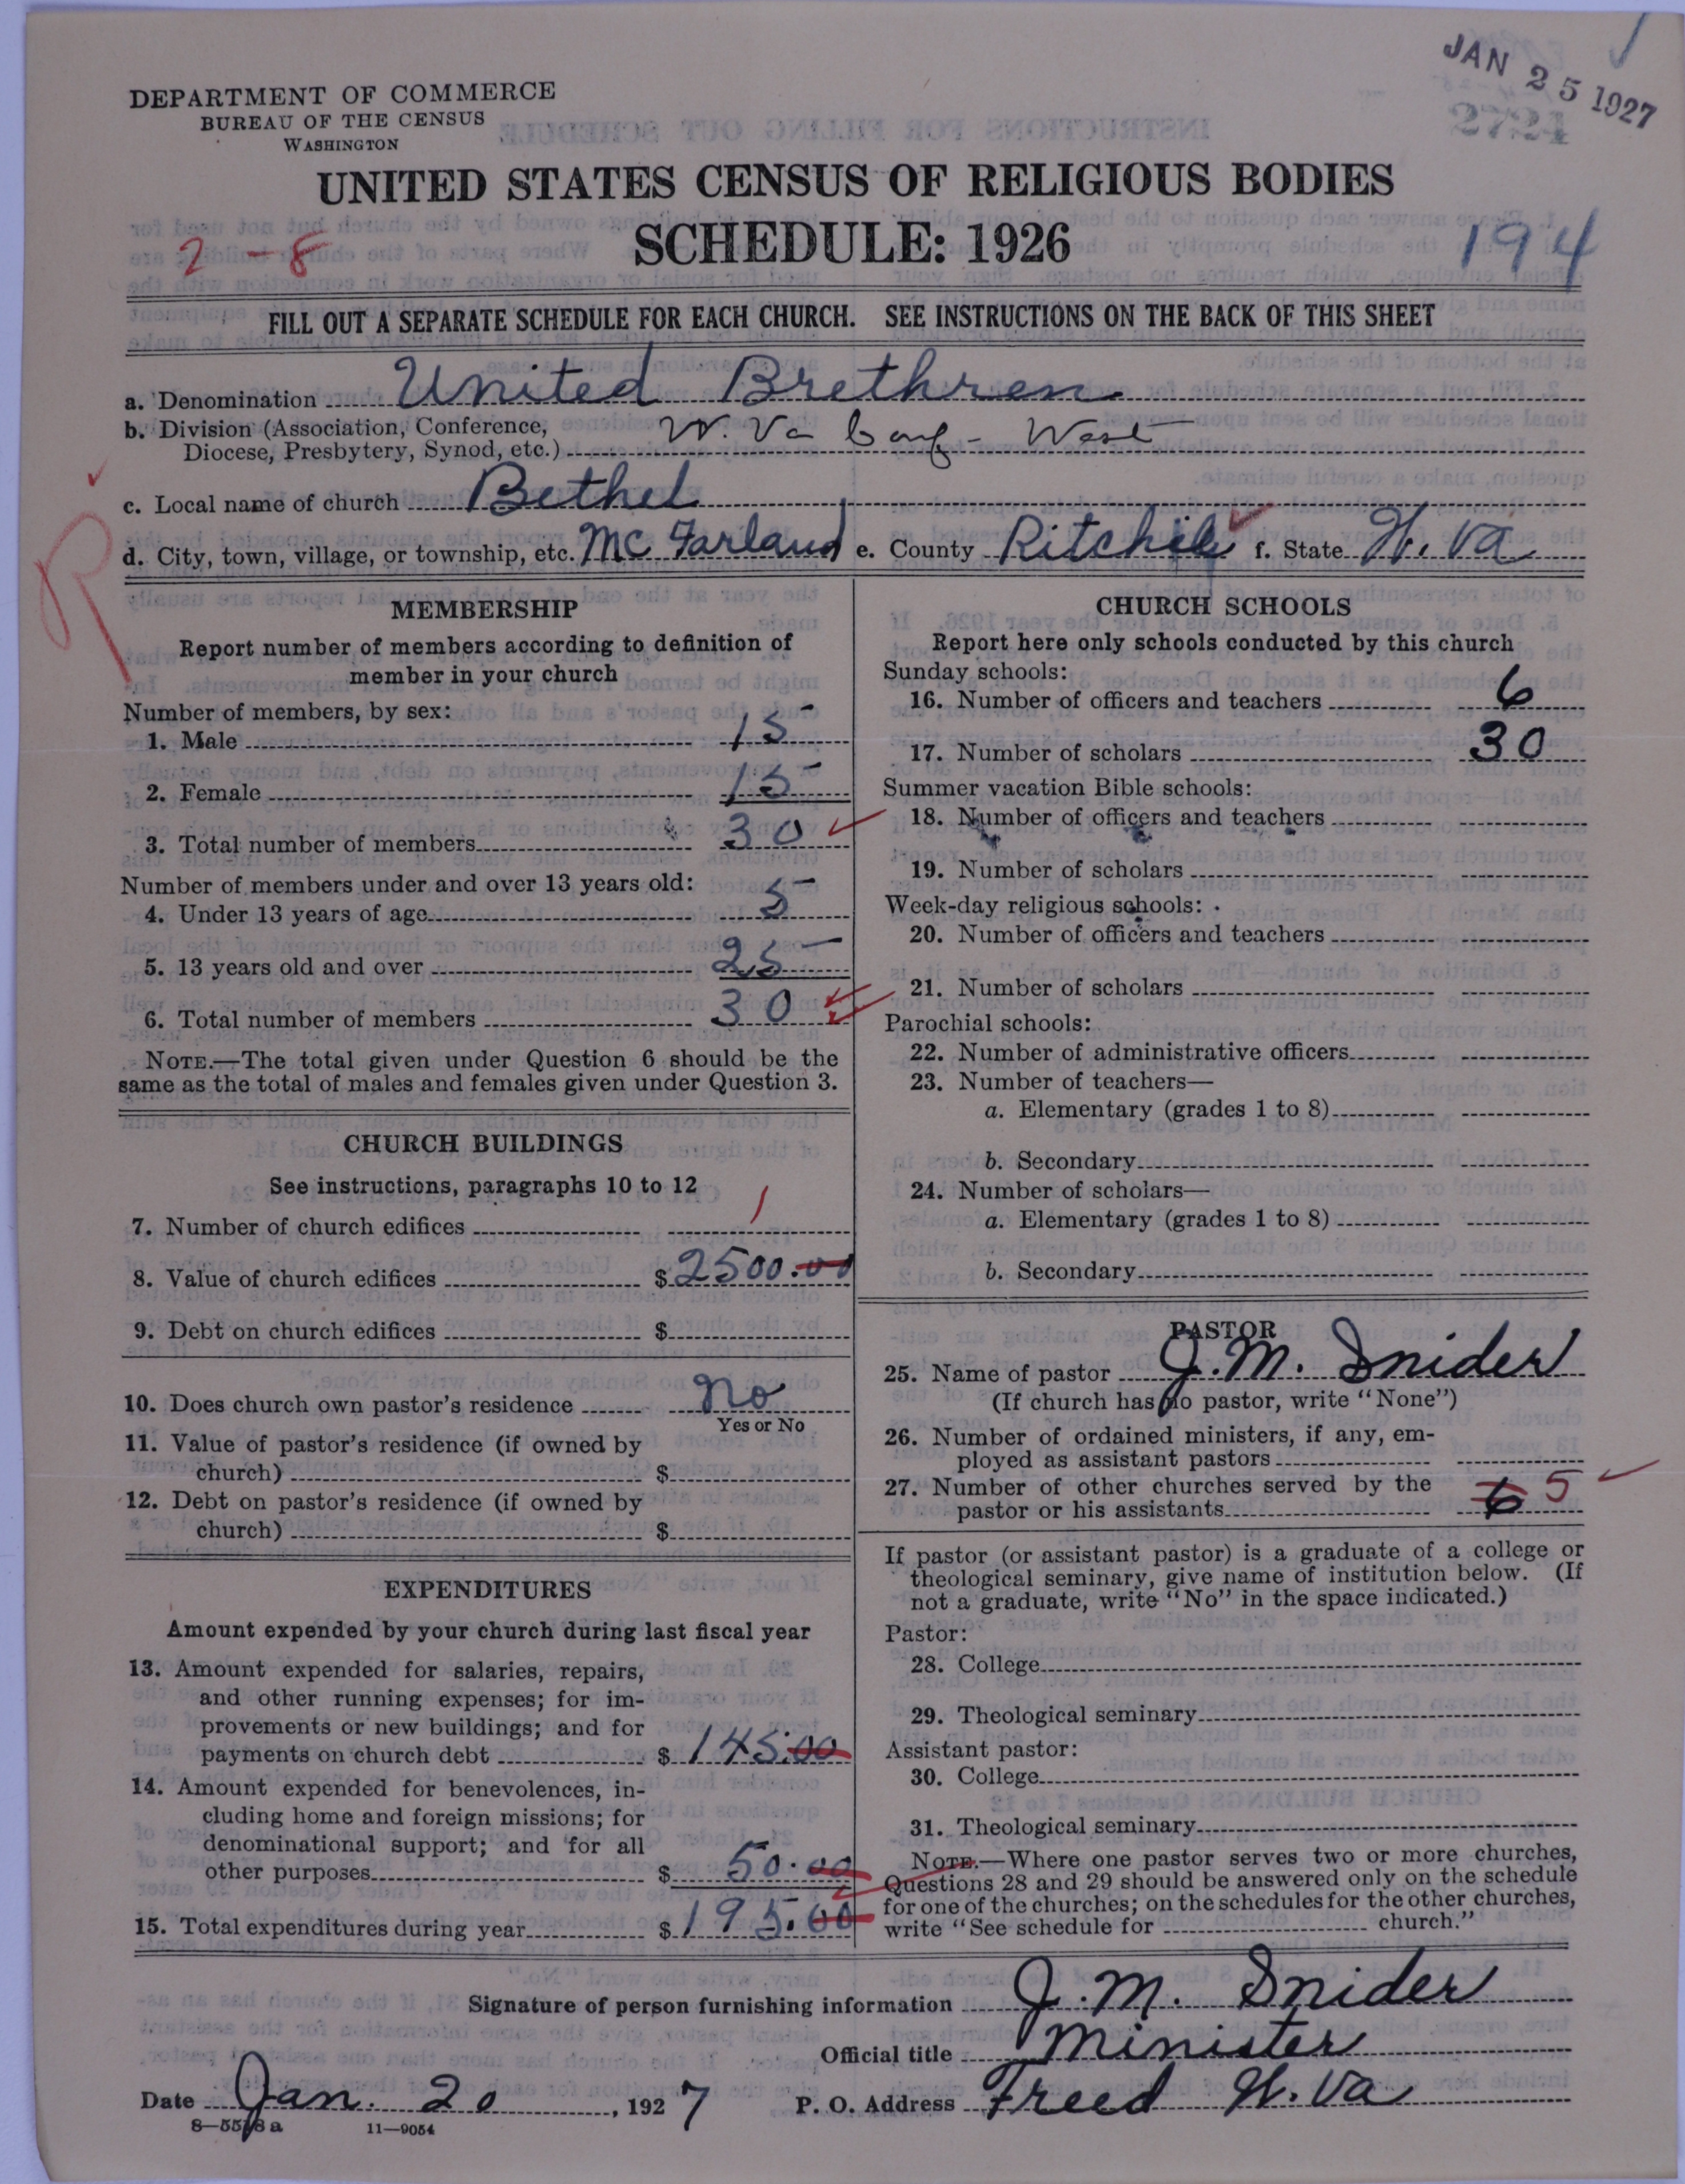 JAN 25 1927
2724
DEPARTMENT OF COMMERCE
BUREAU OF THE CENSUS
WASHINGTON
UNITED STATES CENSUS OF RELIGIOUS BODIES
SCHEDULE: 1926
2-8
194
FILL OUT A SEPARATE SCHEDULE FOR EACH CHURCH. SEE INSTRUCTIONS ON THE BACK OF THIS SHEET
a. Denomination United Brethren
b. Division (Association, Conference,
Diocese, Presbytery, Synod, etc.) W. Va Conf - West
c. Local name of church Bethel
d. City, town, village, or township, etc. Mc Farland e. County Ritchie f. State W. Va
R
MEMBERSHIP
Report number of members according to definition of
member in your church
Number of members, by sex:
1. Male 15
2. Female 15
3. Total number of members 30
Number of members under and over 13 years old:
4. Under 13 years of age 5
5. 13 years old and over 25
6. Total number of members 30
NOTE.—The total given under Question 6 should be the
same as the total of males and females given under Question 3.
CHURCH BUILDINGS
See instructions, paragraphs 10 to 12
7. Number of church edifices 1
8. Value of church edifices $ 2500.00
9. Debt on church edifices $
10. Does church own pastor's residence No
Yes or No
11. Value of pastor's residence (if owned by
church) $
12. Debt on pastor's residence (if owned by
church) $
EXPENDITURES
Amount expended by your church during last fiscal year
13. Amount expended for salaries, repairs,
and other running expenses; for im-
provements or new buildings; and for
payments on church debt $ 145.00
14. Amount expended for benevolences, in-
cluding home and foreign missions; for
denominational support; and for all
other purposes $ 50.00
15. Total expenditures during year $ 195.00
CHURCH SCHOOLS
Report here only schools conducted by this church
Sunday schools:
16. Number of officers and teachers 6
17. Number of scholars 30
Summer vacation Bible schools:
18. Number of officers and teachers
19. Number of scholars
Week-day religious schools:
20. Number of officers and teachers
21. Number of scholars
Parochial schools:
22. Number of administrative officers
23. Number of teachers—
a. Elementary (grades 1 to 8)
b. Secondary
24. Number of scholars—
a. Elementary (grades 1 to 8)
b. Secondary
PASTOR
25. Name of pastor J. M. Snider
(If church has no pastor, write "None")
26. Number of ordained ministers, if any, em-
ployed as assistant pastors
27. Number of other churches served by the
pastor or his assistants 6 5
If pastor (or assistant pastor) is a graduate of a college or
theological seminary, give name of institution below. (If
not a graduate, write "No" in the space indicated.)
Pastor:
28. College
29. Theological seminary
Assistant pastor:
30. College
31. Theological seminary
NOTE.—Where one pastor serves two or more churches,
Questions 28 and 29 should be answered only on the schedule
for one of the churches; on the schedules for the other churches,
write "See schedule for church."
Signature of person furnishing information J. M. Snider
Official title Minister
Date Jan. 20, 1927 P. O. Address Freed W. Va
8—5528a 11—9054